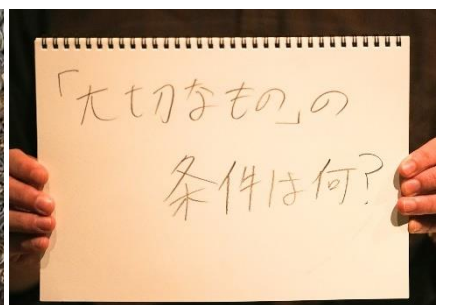 「大切なもの」の
条件は何?